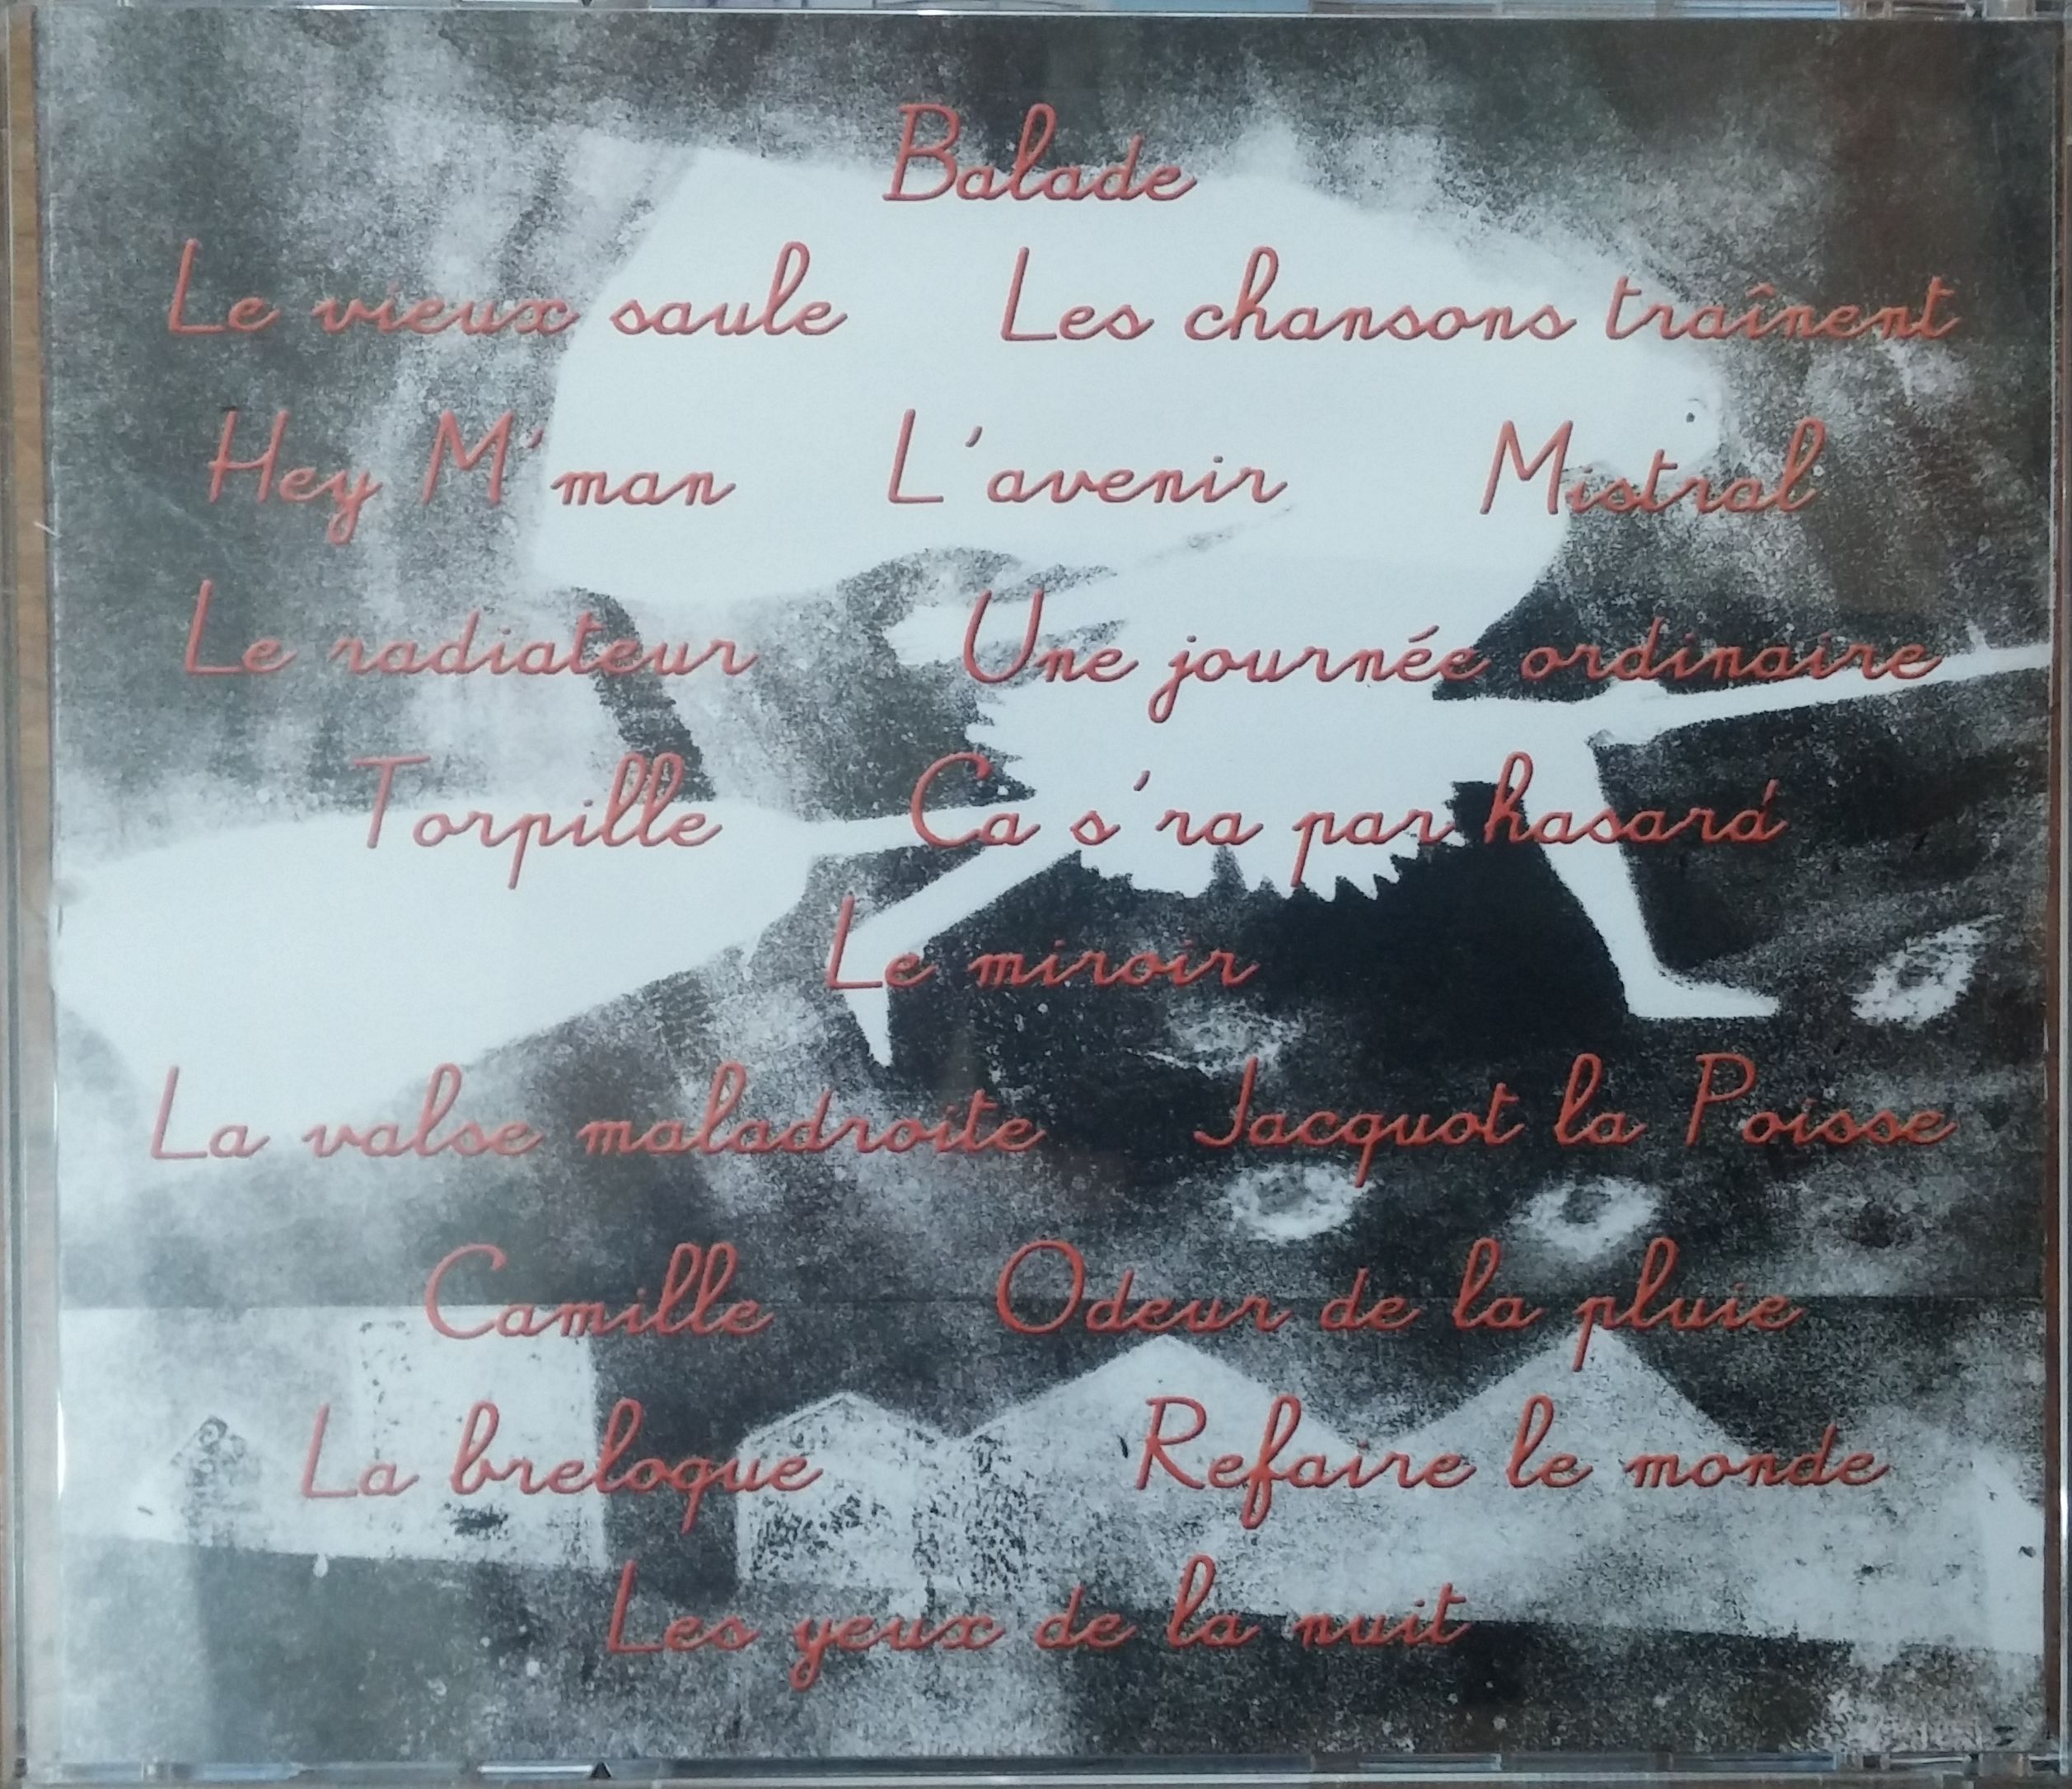 Balade
Le vieux saule Les chansons traînent
Hey M'man L'avenir Mistral
Le radiateur Une journée ordinaire
Torpille Ca s'ra par hasard
Le miroir
La valse maladroite Jacquot la Poisse
Camille Odeur de la pluie
La breloque Refaire le monde
Les yeux de la nuit